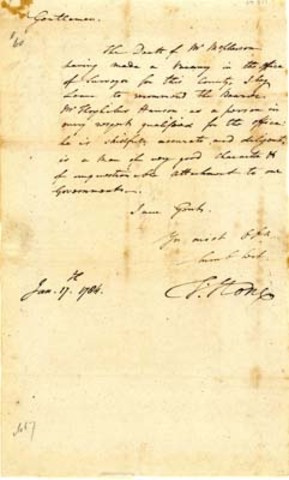 Gentlemen.
The Death of Mr McPherson
having made a Vacancy in the office
of Surveyor for this County, I beg
Leave to recommend the Bearer
Mr Theophilus Hanson as a person in
every respect qualified for the office
he is skillful, accurate and diligent,
is a Man of very good character &
of unquestionable attachment to our
Government.
I am Gent.
Yr most
Jan. 17th 1784.